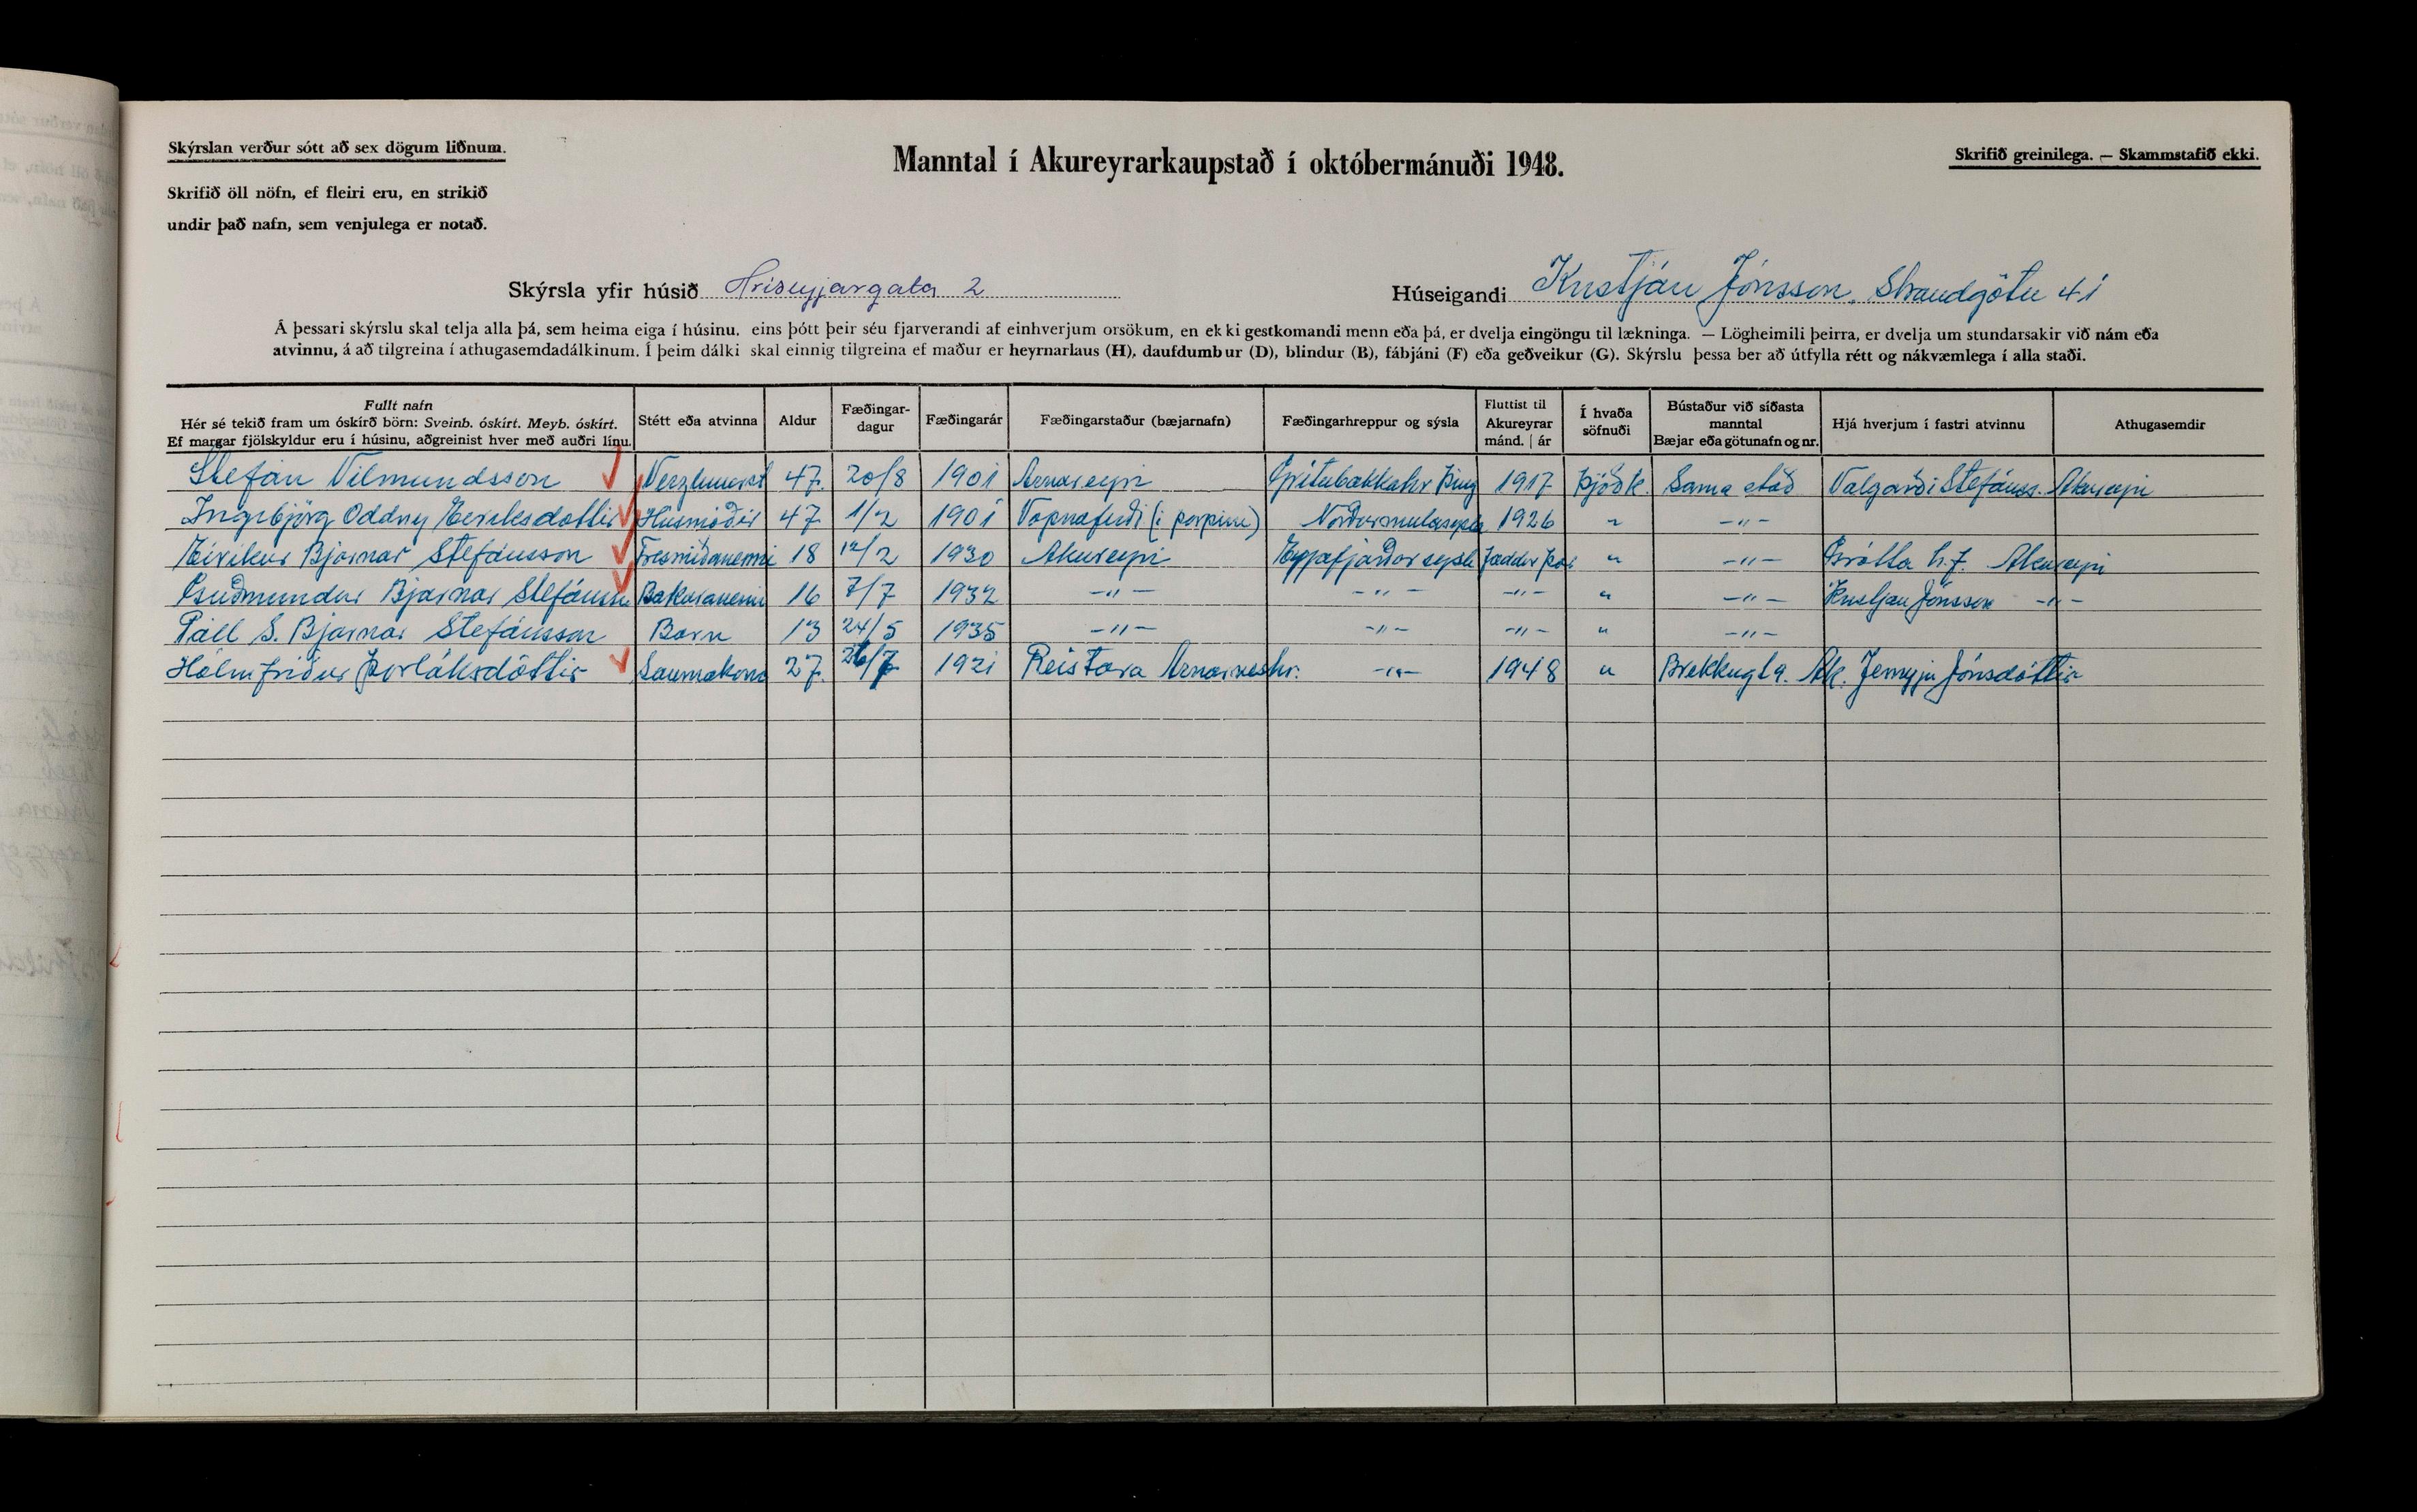 Skýrslan verður sótt að sex dögum liðnum.
Manntal í Akureyrarkaupstað í októbermánuði 1948.
Skrifið greinilega. — Skammstafið ekki.
Skrifið öll nöfn, ef fleiri eru, en strikið
undir það nafn, sem venjulega er notað.
Skýrsla yfir húsið Hríseyjargata 2
Húseigandi Kristján Jónsson, Strandgötu 41
Á þessari skýrslu skal telja alla þá, sem heima eiga í húsinu, eins þótt þeir séu fjarverandi af einhverjum orsökum, en ekki gestkomandi menn eða þá, er dvelja eingöngu til lækninga. — Lögheimili þeirra, er dvelja um stundarsakir við nám eða
atvinnu, á að tilgreina í athugasemdadálkinum. Í þeim dálki skal einnig tilgreina ef maður er heyrnarlaus (H), daufdumbur (D), blindur (B), fábjáni (F) eða geðveikur (G). Skýrslu þessa ber að útfylla rétt og nákvæmlega í alla staði.
Fullt nafn
Hér sé tekið fram um óskírð börn: Sveinb. óskírt. Meyb. óskírt.
Ef margar fjölskyldur eru í húsinu, aðgreinist hver með auðri línu.
Stétt eða atvinna
Aldur
Fæðingar-
dagur
Fæðingarár
Fæðingarstaður (bæjarnafn)
Fæðingarhreppur og sýsla
Fluttist til
Akureyrar
mánd. | ár
Í hvaða
söfnuði
Bústaður við síðasta
manntal
Bæjar eða götunafn og nr.
Hjá hverjum í fastri atvinnu
Athugasemdir
Stefán Vilmundsson 47. 20/8 1901 Arnareyri Grítubakkahr Þing 1917 Þjóðk. Sama stað Valgarði Stefánss. Akureyri
Ingibjörg Oddny Eiríksdottir Húsmóðir 47 1/2 1901 Vopnafirði (í þorpinu) Norðurmulasysla 1926 " -"-
Eiríkur Bjarnar Stefánsson Tresmíðanemi 18 12/2 1930 Akureyri Eyjafjarðarsysla fæddur þar " -"- Grótta h.f. Akureyri
Guðmundur Bjarnar Stefánsson Bakaranemi 16 7/7 1932 -"- -"- -"- " -"- Kristján Jónsson -"-
Páll S. Bjarnar Stefánsson Barn 13 24/5 1935 -"- -"- -"- " -"-
Hólmfríður Þorláksdóttir Saumakona 27. 26/7 1921 Reistará Arnarneshr. -"- 1948 " Ak. Jónsdóttir